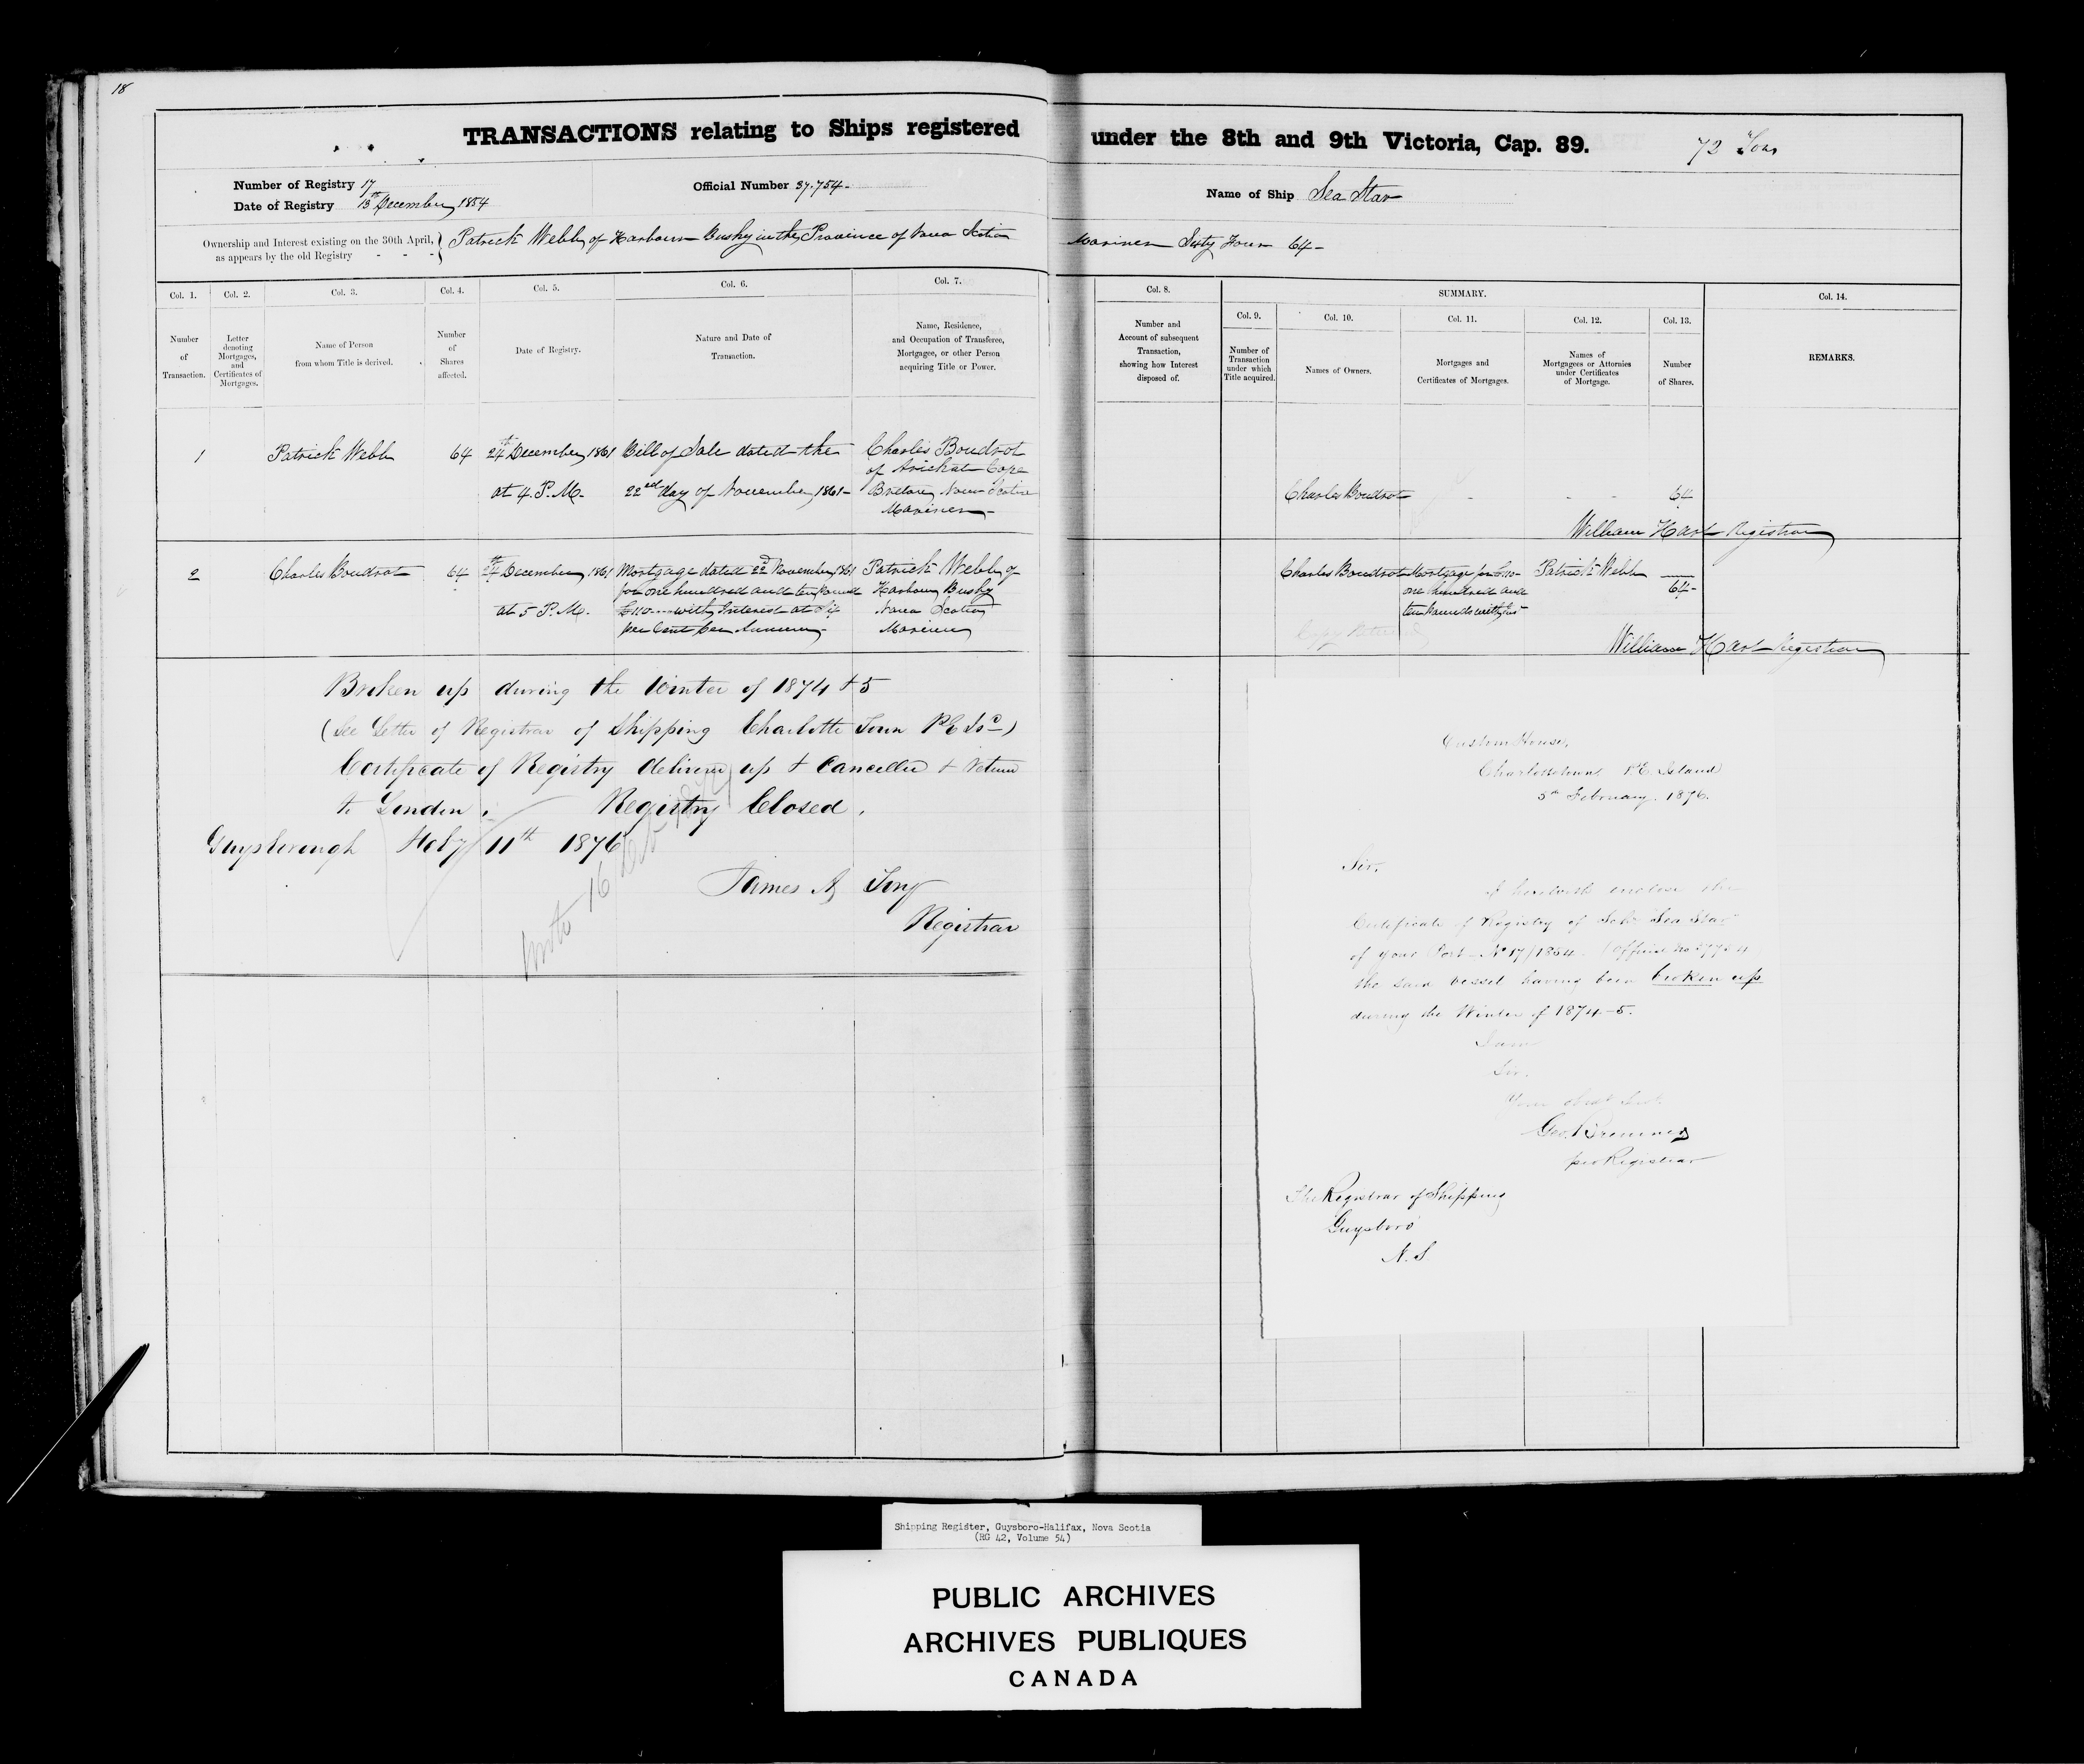 18
TRANSACTIONS relating to Ships registered under the 8th and 9th Victoria, Cap. 89.
72 Tons
Number of Registry 17
Date of Registry 13th December 1854
Official Number 37.754-
Name of Ship Sea Star
Ownership and Interest existing on the 30th April,
as appears by the old Registry - - -
Patrick Webb of Harbour Bushy in the Province of Nova Scotia Mariner Sixty Four 64-
Col. 1.
Number
of
Transaction.
Col. 2.
Letter
denoting
Mortgages,
and
Certificates of
Mortgages.
Col. 3.
Name of Person
from whom Title is derived.
Col. 4.
Number
of
Shares
affected.
Col. 5.
Date of Registry.
Col. 6.
Nature and Date of
Transaction.
Col. 7.
Name, Residence,
and Occupation of Transferee,
Mortgagee, or other Person
acquiring Title or Power.
Col. 8.
Number and
Account of subsequent
Transaction,
showing how Interest
disposed of.
SUMMARY.
Col. 9.
Number of
Transaction
under which
Title acquired.
Col. 10.
Names of Owners.
Col. 11.
Mortgages and
Certificates of Mortgages.
Col. 12.
Names of
Mortgagees or Attornies
under Certificates
of Mortgage.
Col. 13.
Number
of Shares.
Col. 14.
REMARKS.
1
Patrick Webb
64
24th December 1861
at 4. P.M.
Bill of Sale dated the
22nd day of November 1861-
Charles Boudrot
of Arichat Cape
Breton Nova Scotia
Mariner-
Charles Boudrot
- - -
64
William Hart Registrar
2
Charles Boudrot
64
24th December 1861
at 5 P.M.
Mortgage dated 22d November 1861
for one hundred and ten Pounds
£110 with Interest at Six
per Cent per Annum-
Patrick Webb of
Harbour Bushy
Nova Scotia
Mariner
Charles Boudrot
Mortgage for £110-
one hundred and
ten Pounds with
Patrick Webb
64-
William Hart Registrar
Broken up during the Winter of 1874 & 5
(See Letter of Registrar of Shipping Charlotte Town PE Isd)
Certificate of Registry delivered up & Cancelled & Return
to London. Registry Closed.
Guysborough Feby 11th 1876
James A Tory
Registrar
Custom House,
Charlottetown P.E. Island
5th February. 1876.
Sir,
I herewith enclose the
Certificate of Registry of Schr "Sea Star"
of your Port - No 17/1854. (Official No 37754
the said vessel having been broken up
during the Winter of 1874-5.
I am
Sir,
Your Obedt Servt
Geo. Bremner
pro Registrar
The Registrar of Shipping
Guysboro'
N.S.
Shipping Register, Guysboro-Halifax, Nova Scotia
(RG 42, Volume 54)
PUBLIC ARCHIVES
ARCHIVES PUBLIQUES
CANADA